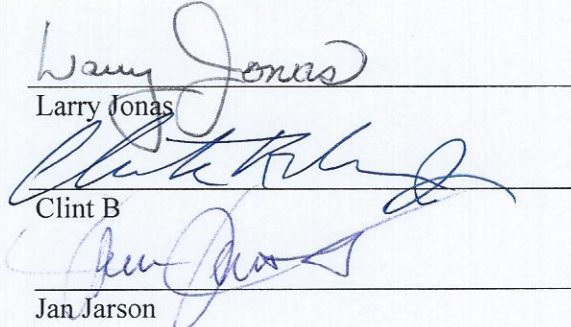 Larry Jonas
Larry Jonas
Clint
Clint B
Jan
Jan Jarson